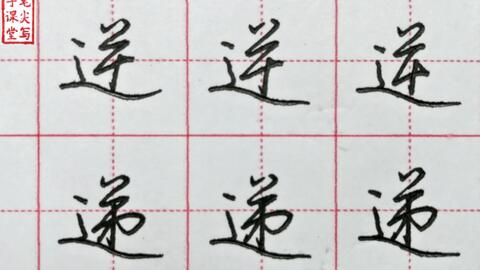 笔尖写
字课堂
逆 逆 逆
递 递 递